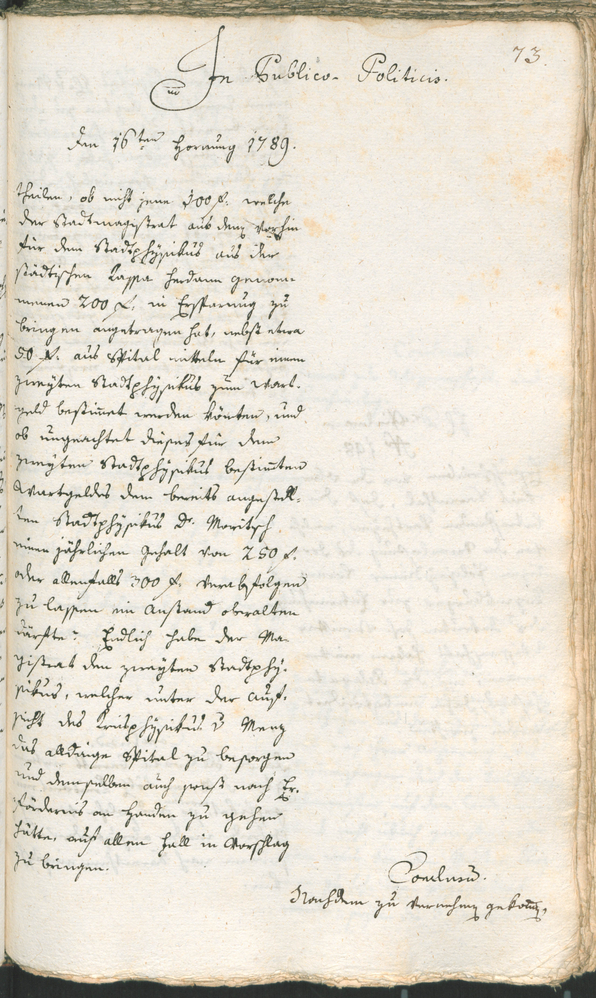 73.
In Publico-Politicis.
den 16ten Hornung 1789.
theilen, ob nicht jene 100 f. welche
der Stadtmagistrat aus dem vorhin
für dem Stadtphÿsikus aus der
städtischen Kassa herdann genom
menen 200 f. in Ersparung zu
bringen angetragen hat, nebst etwa
50 f. aus Spital mitteln für einen
zweÿten Stadtphÿsikus zum wart-
geld bestimet werden könten, und
ob ungeachtet dieses für dem
zweÿten Stadtphÿsikus bestimten
Wartgeldes dem bereits angestell-
ten Stadtphÿsikus Dr. Moritsch
einen jährlichen Gehalt von 250 f.
oder allenfalls 300 f. verabfolgen
zu lassen ein Anstand obwalten
därfte? Endlich habe der Ma-
gistrat den zweÿten Stadtphÿ-
sikus, welcher unter der Auf-
sicht des Kreisphÿsikus v Menz
das alldaige Spital zu besorgen
und demselben auch sonst nach Er-
förderniß an Handen zu gehen
hätte, auf allen Fall in Vorschlag
zu bringen.
Conclusum.
Nachdem zu vernehmen gekomen,